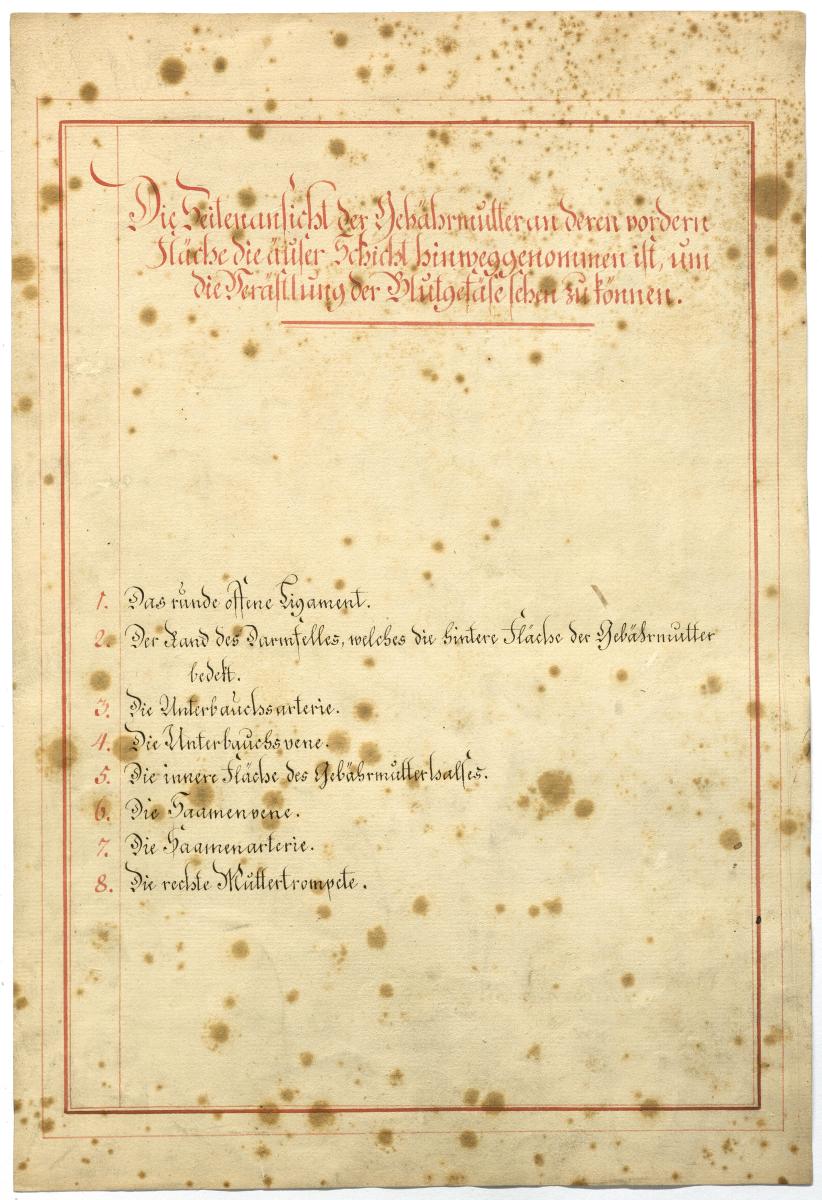 Die Seitenansicht der Gebährmutter an deren vordern
Fläche die äuser Schicht hinweggenommen ist, um
die Verästlung der Blutgefäse sehen zu können.
1. Das runde offene Ligament.
2. Der Rand des Darmfelles, welches die hintere Fläche der Gebährmutter
bedekt.
3. Die Unterbauchsarterie.
4. Die Unterbauchsvene.
5. Die innere Fläche des Gebährmutterhalses.
6. Die Saamenvene.
7. Die Saamenarterie.
8. Die rechte Muttertrompete.